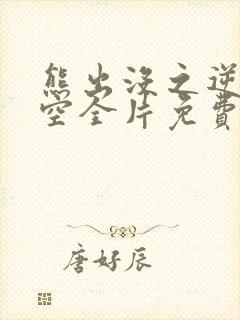 熊出没之逆
空全片免费
唐好辰